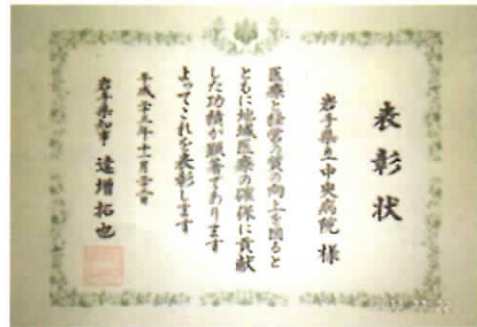 表彰状
岩手県立中央病院 様
医療と経営の質の向上を図ると
ともに地域医療の確保に貢献
した功績が顕著であります
よってこれを表彰します
平成二十三年十一月
岩手県知事 達増拓也